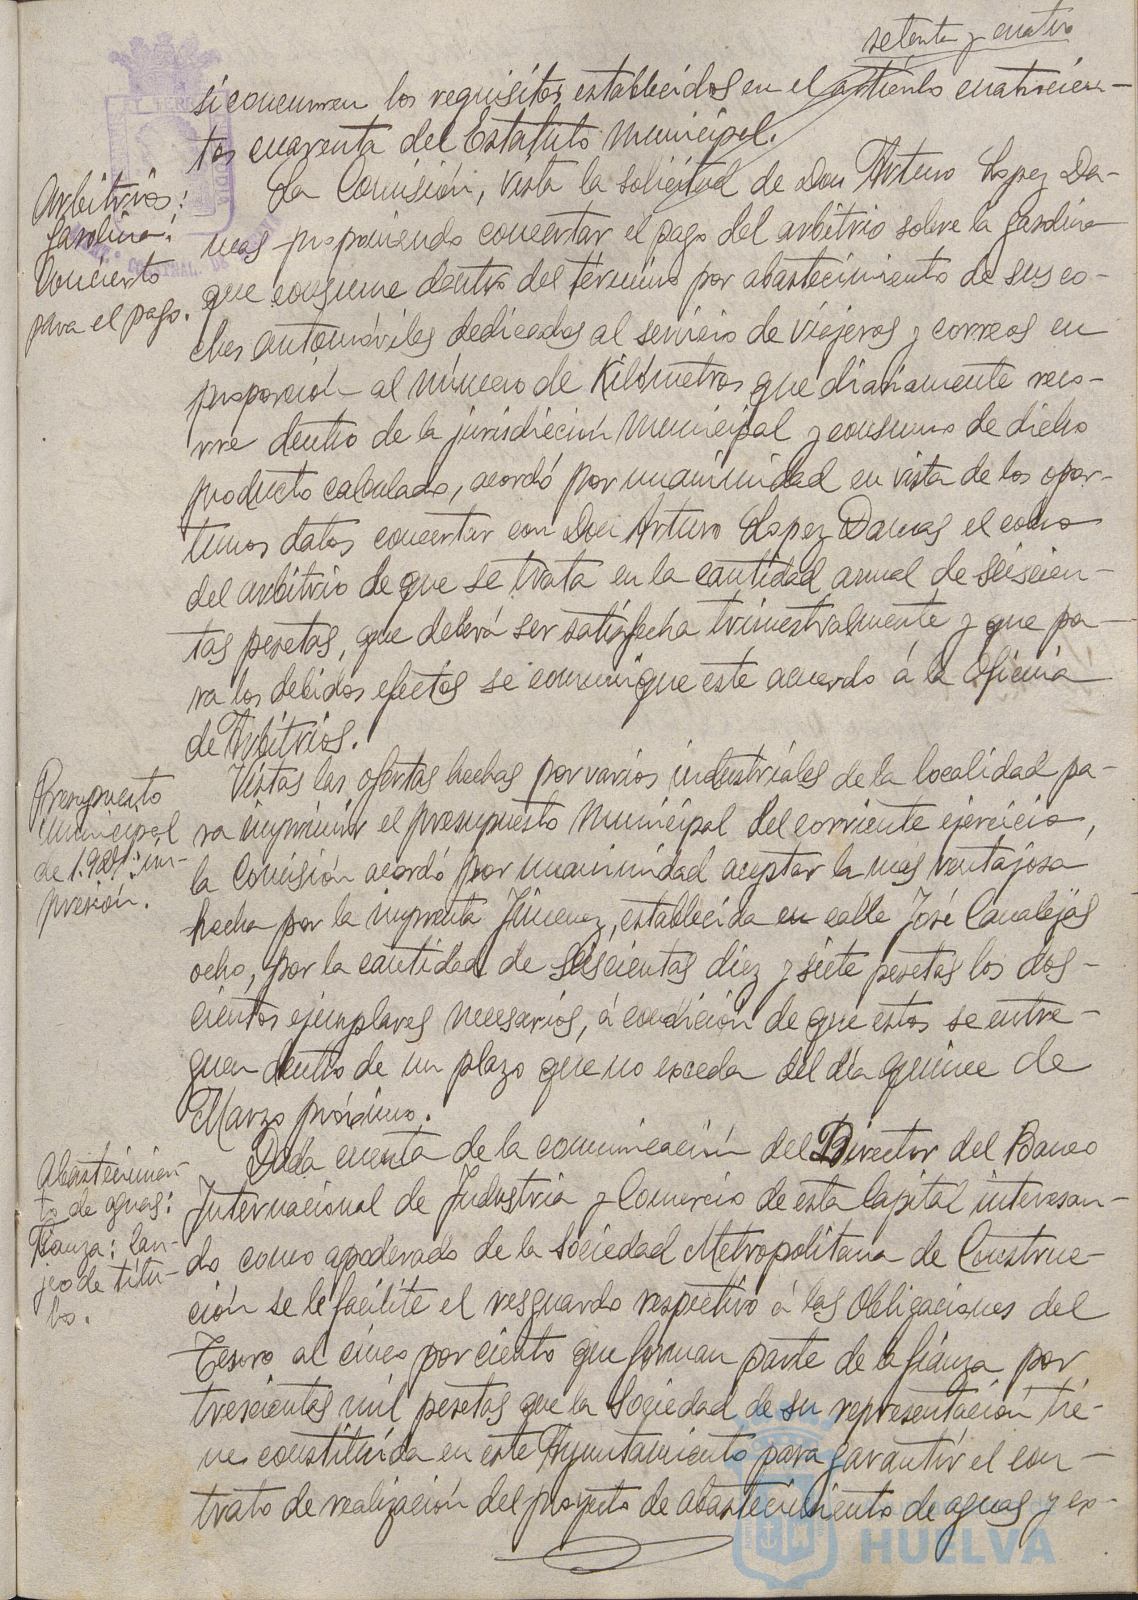 setenta y cuatro
si concurren los requisitos establecidos en el artículo cuatrocien-
tos cuarenta del Estatuto Municipal.
Arbitrios:
Gasolina:
Concierto
para el pago.
La Comisión, vista la solicitud de Don Arturo Lopez Da-
mas proponiendo concertar el pago del arbitrio sobre la gasolina
que consume dentro del término por abastecimiento de sus co-
ches automóviles dedicados al servicio de viajeros y correos en
proporción al número de Kilómetros que diariamente reco-
rre dentro de la jurisdicción Municipal y consumo de dicho
producto calculado, acordó por unanimidad en vista de los opor-
tunos datos concertar con Don Arturo Lopez Damas el cobro
del arbitrio de que se trata en la cantidad anual de seiscien-
tas pesetas, que deberá ser satisfecha trimestralmente y que pa-
ra los debidos efectos se comunique este acuerdo á la Oficina
de Arbitrios.
Presupuesto
municipal
de 1.927: im-
presión.
Vistas las ofertas hechas por varios industriales de la localidad pa-
ra imprimir el presupuesto Municipal del corriente ejercicio,
la Comisión acordó por unanimidad aceptar la más ventajosa
hecha por la imprenta Jimenez, establecida en calle José Canalejas
ocho, por la cantidad de seiscientas diez y siete pesetas los dos-
cientos ejemplares necesarios, á condición de que estos se entre-
guen dentro de un plazo que no exceda del día quince de
Marzo próximo.
Abastecimien-
to de aguas:
Fianza: Can-
jeo de títu-
los.
Dada cuenta de la comunicación del Director del Banco
Internacional de Industria y Comercio de esta Capital interesan-
do como apoderado de la Sociedad Metropolitana de Construc-
ción se le facilite el resguardo respectivo á las Obligaciones del
Tesoro al cinco por ciento que forman parte de la fianza por
trescientas mil pesetas que la Sociedad de su representación tie-
ne constituída en este Ayuntamiento para garantir el con-
trato de realización del proyecto de abastecimiento de aguas y ex-
HUELVA